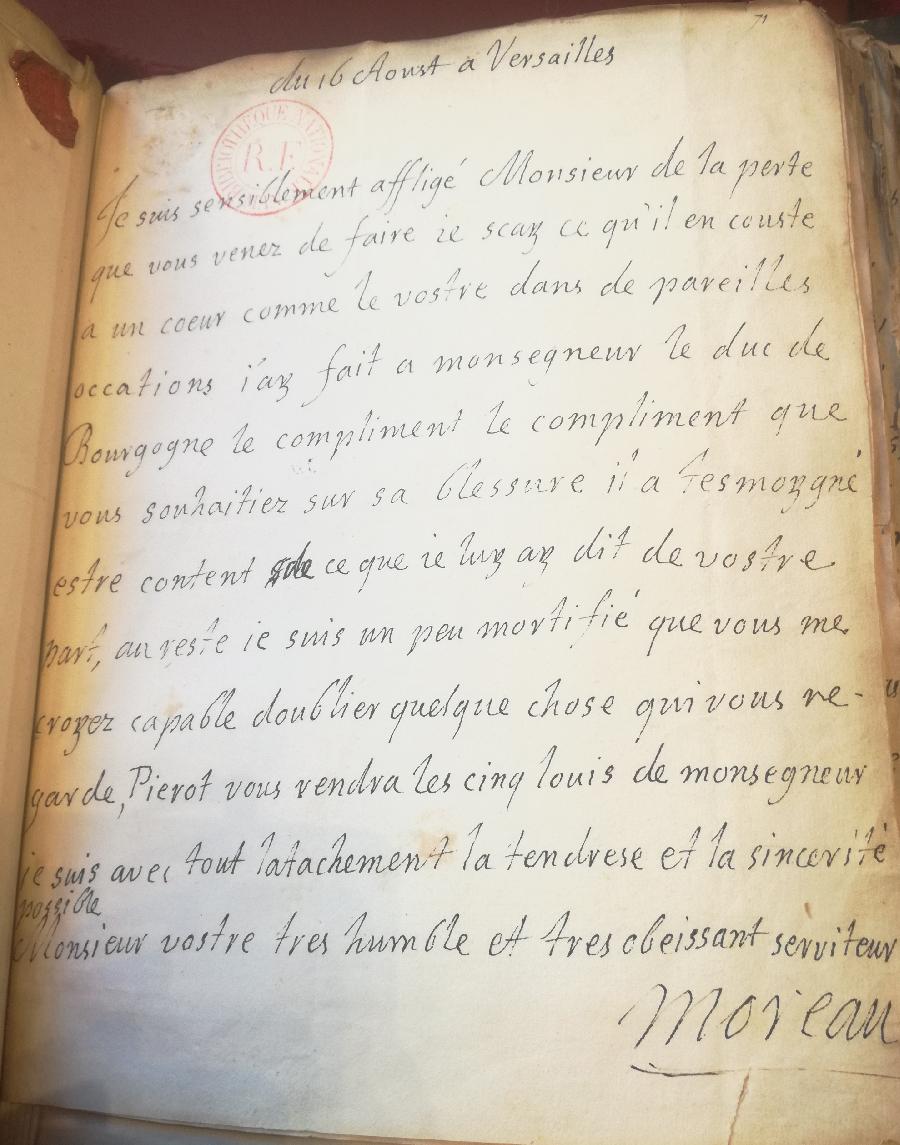 71
du 16 Aoust a Versailles
BIBLIOTHEQUE NATIONALE
R.F.
Je suis sensiblement affligé Monsieur de la perte
que vous venez de faire ie scay ce qu'il en couste
a un coeur comme le vostre dans de pareilles
occations i'ay fait a monsegneur le duc de
Bourgogne le compliment le compliment que
vous souhaitiez sur sa blessure il a tesmoygné
estre content de ce que ie luy ay dit de vostre
part, au reste ie suis un peu mortifié que vous me
croyez capable doublier quelque chose qui vous re-
garde, Pierot vous rendra les cinq louis de monsegneur
je suis avec tout latachement la tendrese et la sincerité
possible
Monsieur vostre tres humble et tres obeissant serviteur
Moreau